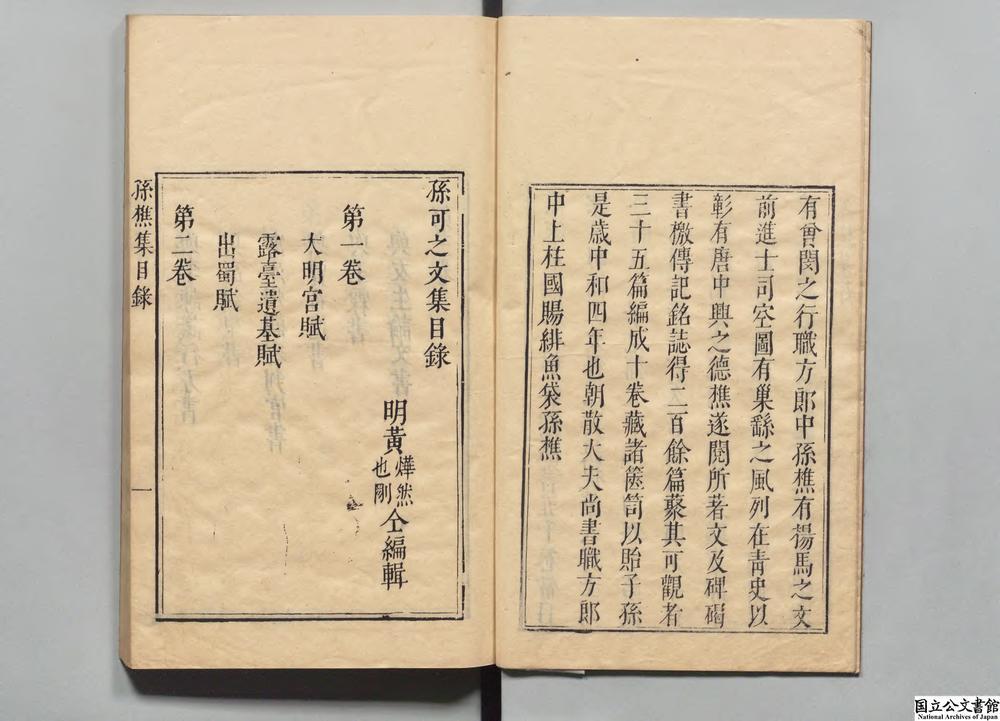 有曾閔之行職方郎中孫樵有揚馬之文
前進士司空圖有巢繇之風列在青史以
彰有唐中興之德樵遂閱所著文及碑碣
書檄傳記銘誌得二百餘篇蘩其可觀者
三十五篇編成十卷藏諸篋笥以貽子孫
是歲中和四年也朝散大夫尚書職方郎
中上柱國賜緋魚袋孫樵
孫可之文集目錄
明黃燁然也剛仝編輯
第一卷
大明宮賦
露臺遺基賦
出蜀賦
第二卷
孫樵集目錄
一
国立公文書館
National Archives of Japan